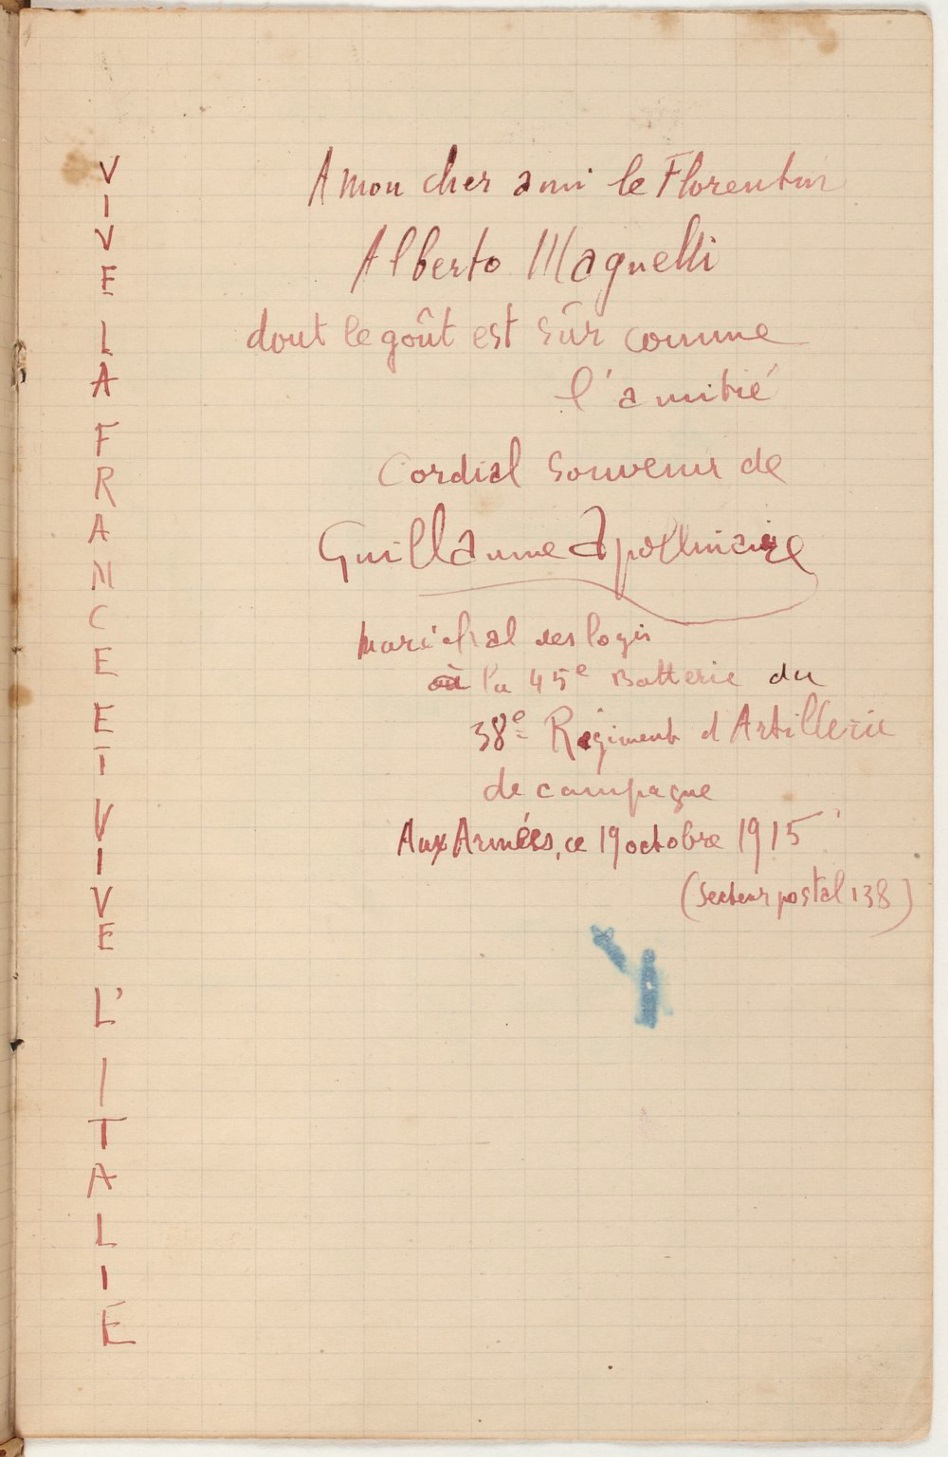 VIVE LA FRANCE ET VIVE L'ITALIE
A mon cher ami le Florentin
Alberto Magnelli
dont le goût est sûr comme
l'amitié
Cordial souvenir de
Guillaume Apollinaire
Maréchal des logis
à la 45e Batterie du
38e Régiment d'Artillerie
de campagne
Aux Armées, ce 19 octobre 1915
(Secteur postal 138)